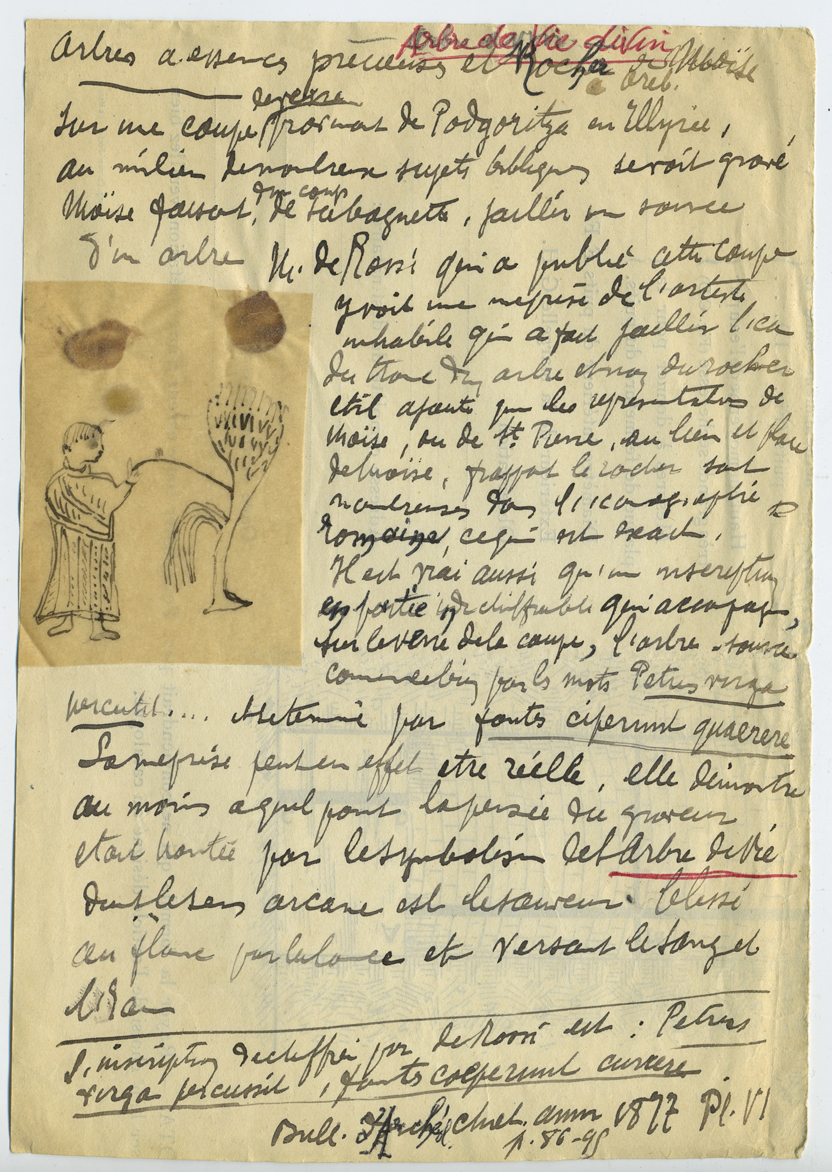 Arbre de Vie divin
Arbres a essences précieuses et Rocher de Moïse
à Oreb.
de verre
Sur une coupe provenant de Podgoritza en Illyrie,
au milieu de nombreux sujets bibliques se voit gravé
Moïse faisant, de sa baguette, jaillir une source
d'un coup
d'un arbre
M. de Rossi qui a publié cette coupe
y voit une méprise de l'artiste
inhabile qui a fait jaillir l'eau
du tronc d'un arbre et non du rocher
et il ajoute que les représentations de
Moïse, ou de St. Pierre, au lieu et place
de Moïse, frappant le rocher sont
nombreuses dans l'iconographie
romaine, ce qui est exact.
Il est vrai aussi qu'une inscription
en partie indéchiffrable qui accompagne,
sur le verre de la coupe, l'arbre-source
commence bien par les mots Petrus virga
percutit.... et se termine par fontes ciperunt quaerere
La méprise peut en effet etre réelle, elle démontre
au moins a quel point la pensée du graveur
etait hantée par le symbolisme de l'Arbre de Vie
dont le sens arcane est le sauveur blessé
au flanc par la lance et versant le sang et
l'Eau
L'inscription dechiffrée par de Rossi est : Petrus
virga percussit, fontes coeperunt currere
Bull. d'Arché. chret. ann 1877 Pl. VI
p. 86-95